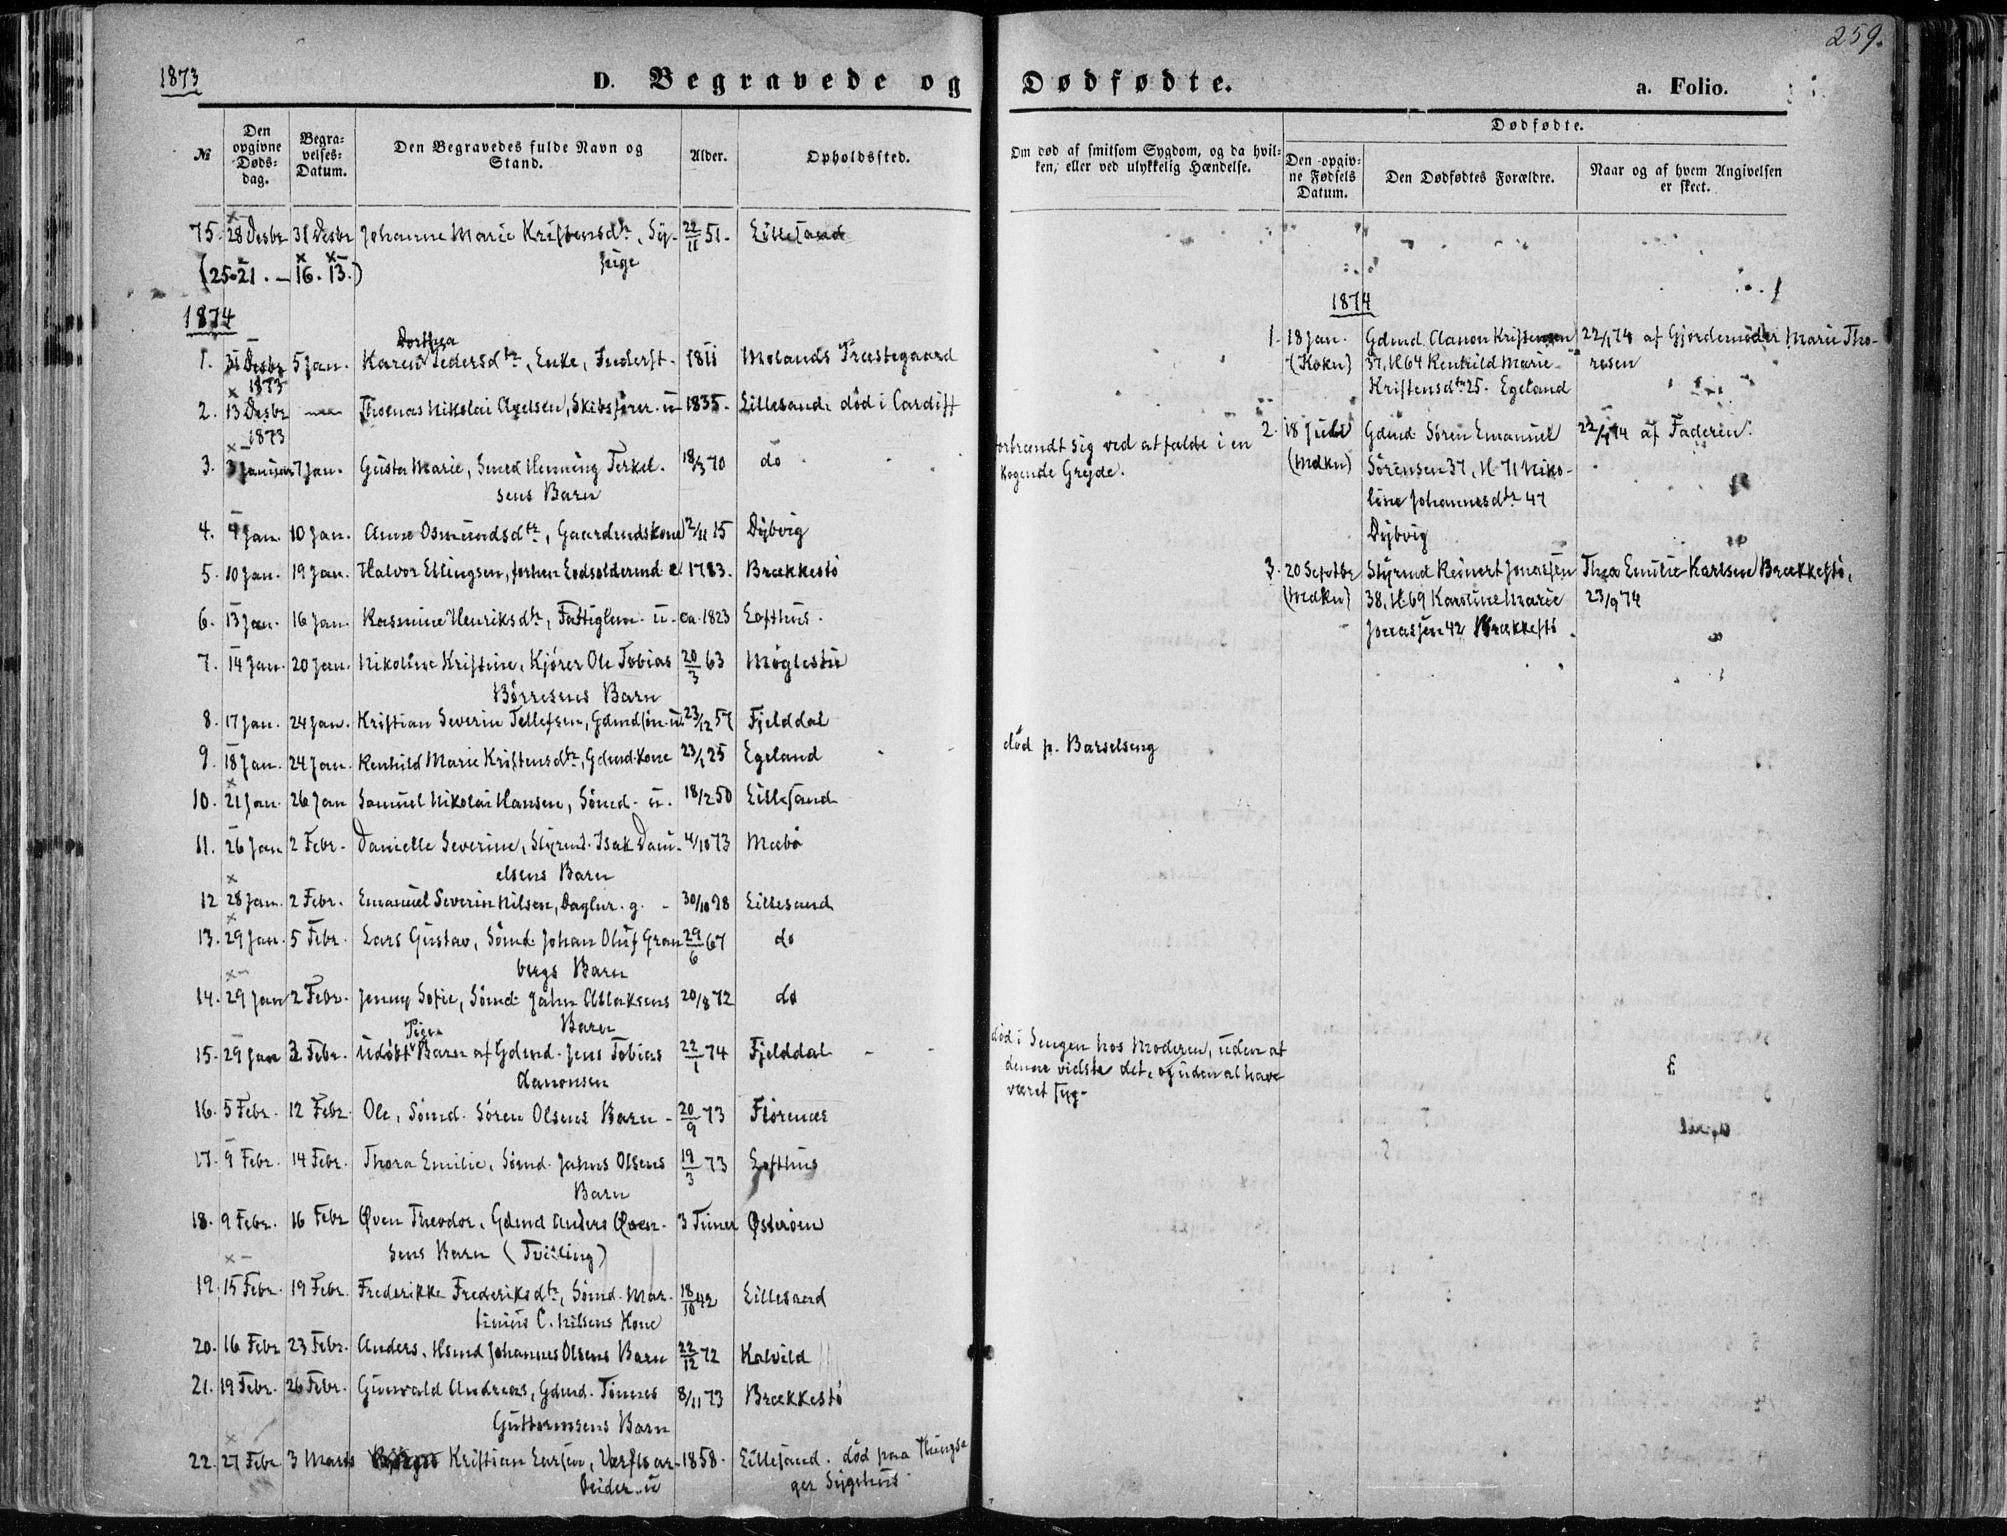 259.
1873
D. Begravede og Dødfødte.
a. Folio.
№
Den opgivne Døds-dag.
Begra-velses-Datum.
Den Begravedes fulde Navn og Stand.
Alder.
Opholdssted.
Om død af smitsom Sygdom, og da hvil-
ken, eller ved ulykkelig Hændelse.
Dødfødte.
Den opgiv-ne Fødsels Datum.
Den Dødfødtes Forældre.
Naar og af hvem Angivelsen er skeet.
75. 28 Desbr 31 Desbr Johanne Marie Kristensdtr, Sy- 22/11 51. Lillesand
pige
(25-21. — 16. 13.)
1874
Dorthea
1. 31 Desbr 5 Jan. Karen Pedersdtr, Enke, Inderst. 1811 Molands Præstegaard
1873
2. 13 Desbr — Thomas Nikolai Axelsen, Skibsfører. u 1835. Lillesand. død i Cardiff
1873
3. 3 Januar 7 Jan. Gusta Marie, Smed Henning Terkel- 18/3 70 do
sens Barn
4. 4 Jan. 10 Jan. Anne Osmundsdtr, Gaardmdskone 12/11 15 Dybvig
5. 10 Jan. 19 Jan. Halvor Ellingsen, forhen Lodsoldermd. e. 1783. Brækkestø
6. 13 Jan. 16 Jan. Rasmine Henriksdtr, Fattiglem. u. ca. 1823 Lofthus.
7. 14 Jan. 20 Jan. Nikoline Kristine, Kjører Ole Tobias 20/3 63 Møglestu
Børresens Barn
8. 17 Jan. 24 Jan. Kristian Severin Tellefsen, Gdmdsøn. u. 23/12 57 Fjelddal
9. 18 Jan. 24 Jan. Renhild Marie Kristensdtr, Gdmd. Kone 23/1 25 Egeland
10. 21 Jan. 26 Jan Samuel Nikolai Hansen, Sømd. u. 18/2 50 Lillesand
11. 26 Jan 2 Febr. Danielle Severine, Styrmd. Isak Dani- 4/10 73 Mæbø
elsens Barn
12 28 Jan. 2 Febr. Emanuel Severin Nilsen, Daglnr. g. 30/10 98 Lillesand
13. 29 Jan. 5 Febr. Lars Gustav, Sømd. Johan Oluf Gran- 29/6 67 do
bergs Barn
14. 29 Jan 2 Febr. Jenny Sofie, Sømd. Jahn Aslaksens 20/8 72 do
Barn
Pige
15. 29 Jan 2 Febr. Udøbt Barn af Gdmd. Jens Tobias 22/1 74 Fjelddal
Aanonsen
16. 5 Febr. 12 Febr. Ole, Sømd. Søren Olsens Barn 20/9 73 Florenæs
17. 9 Febr. 14 Febr. Thora Emilie, Sømd. Jahns Olsens 19/3 73 Lofthus
Barn
18. 9 Febr. 16 Febr Øven Theodor, Gdmd Anders Øven- 3 Timer Østerøen
sens Barn (Tvilling)
19. 15 Febr. 19 Febr. Frederikke Frederiksdtr, Sømd. Mar- 18/10 42 Lillesand
tinius C. Nilsens Kone
20. 16 Febr 23 Febr. Anders, Hsmd Johannes Olsens Barn 22/12 72 Kalvild
21. 19 Febr. 26 Febr. Gunvald Andreas, Gdmd. Tønnes 8/11 73 Brækkestø
Guttormsens Barn
22. 27 Febr 3 Marts Kristian Larsen, Verftsar- 1858. Lillesand. død paa Thingsa-
beider. u ger Sygehus
forbrændt sig ved at falde i en
kogende Gryde.
død p. Barselseng
død i Sengen hos Moderen, uden at
denne vidste det, og uden at have
været syg.
1874
1. 18 Jan. Gdmd. Aanon Kristensen 22/1 74 af Gjordemoder Marie Tho-
(Kvkn) 37, & 64 Renhild Marie resen
Kristensdtr 25. Egeland
2. 18 Juli Gdmd Søren Emanuel 22/7 74 af Faderen.
(Mdkn) Sørensen 37, & 71 Niko-
line Johannesdtr 47
Dybvig
3. 20 Septbr Styrmd Reinert Jonassen Thea Emilie Karlsen Brækkestø,
(Mdkn) 38, & 69 Karoline Marie 23/9 74
Jonassen 42 Brækkestø